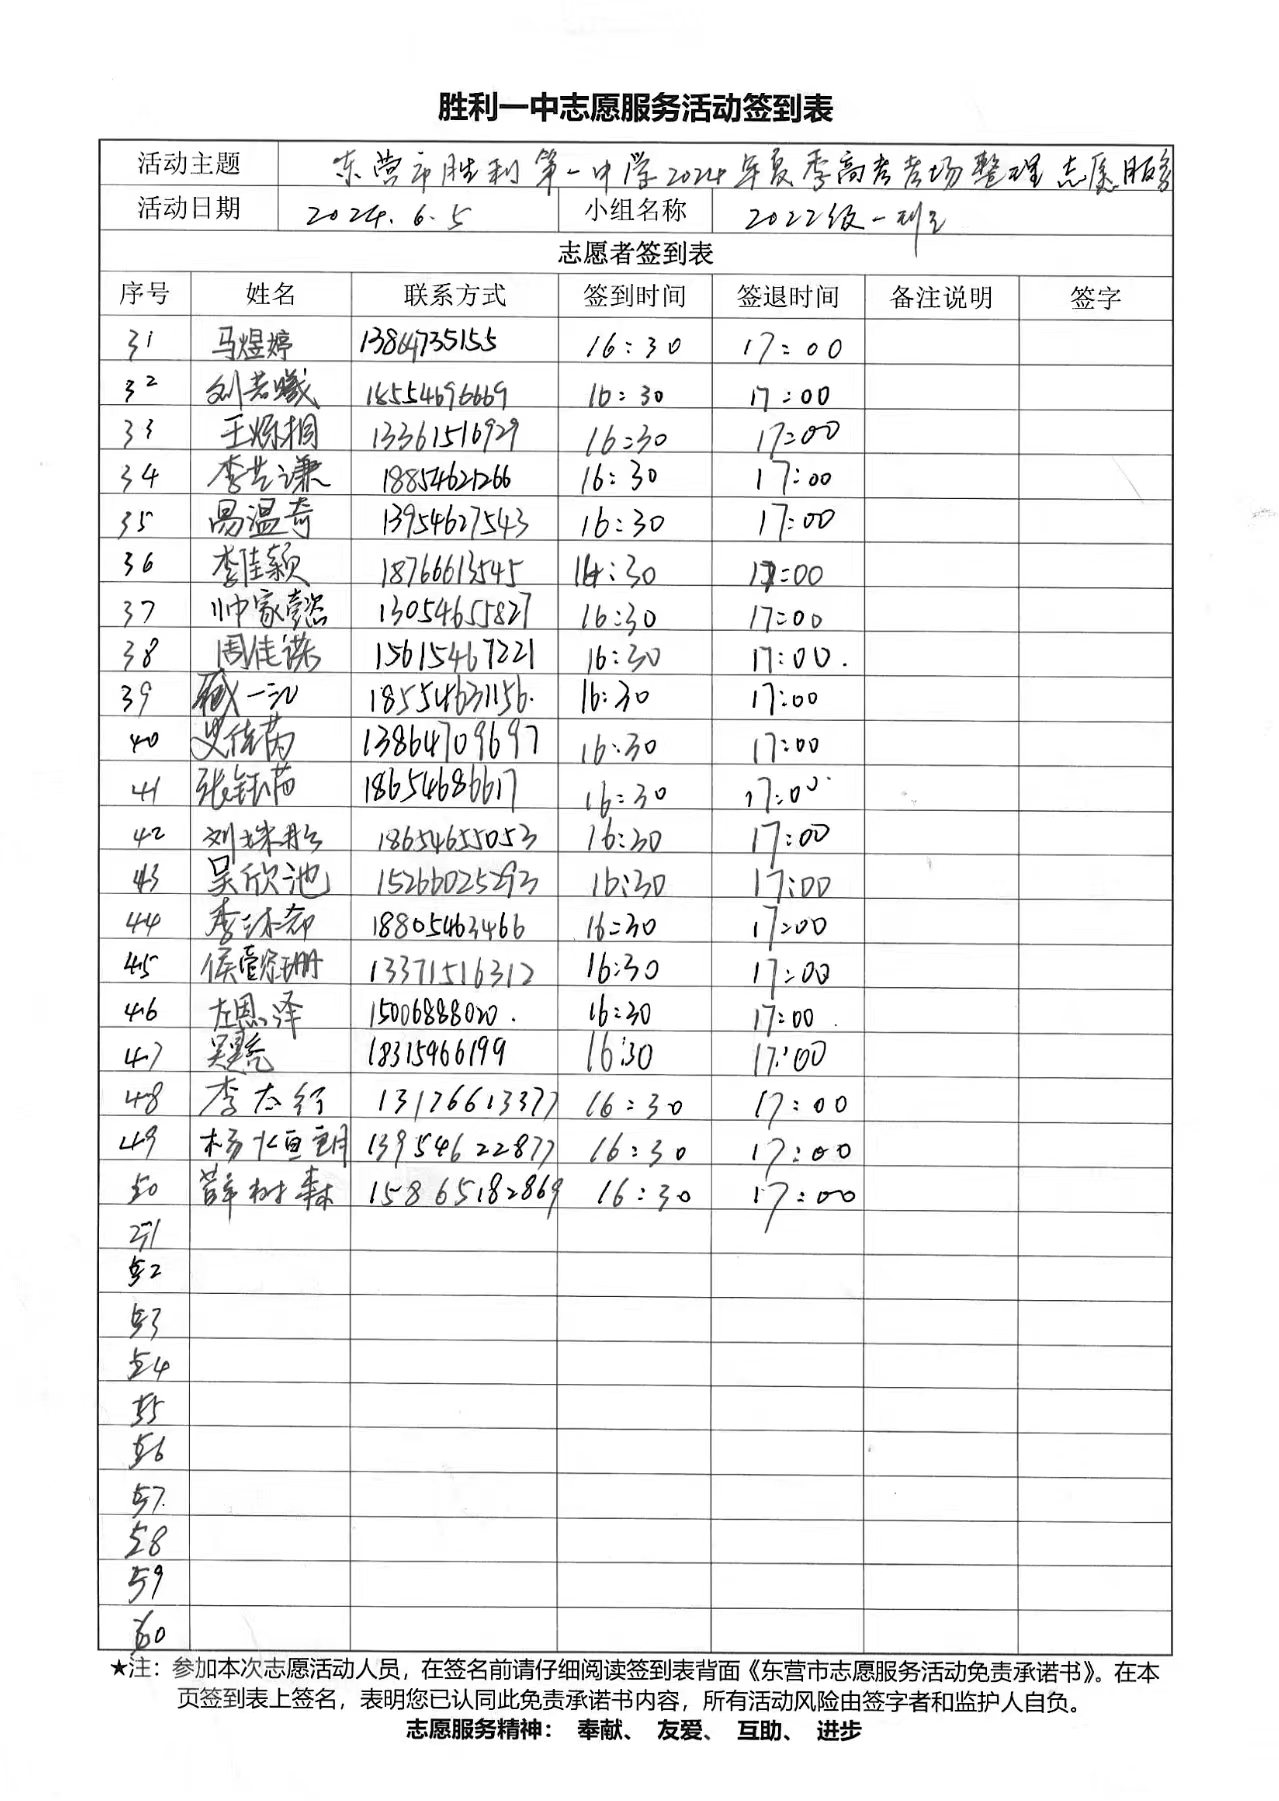 胜利一中志愿服务活动签到表
活动主题 东营市胜利第一中学2024年夏季高考考场整理志愿服务
活动日期 2024.6.5 小组名称 2022级一部
志愿者签到表
序号 姓名 联系方式 签到时间 签退时间 备注说明 签字
31 马煜婷 13864735155 16:30 17:00
32 刘若曦 18554696669 16:30 17:00
33 王烁桐 13361516929 16:30 17:00
34 李艺谦 18854621266 16:30 17:00
35 易温奇 13954627543 16:30 17:00
36 李佳颖 18766613545 16:30 17:00
37 帅家懿 13054655827 16:30 17:00
38 周佳诺 15615467221 16:30 17:00.
39 臧一 18554631156. 16:30 17:00
40 艾佳芮 13864709697 16:30 17:00
41 张钰茜 18654686617 16:30 17:00
42 刘 18654655053 16:30 17:00
43 吴欣池 15266025293 16:30 17:00
44 李沐 18805463466 16:30 17:00
45 侯 13371516312 16:30 17:00
46 左恩泽 15006888020. 16:30 17:00.
47 吴 18315466199 16:30 17:00
48 李太行 13176613377 16:30 17:00
49 杨恒 13954622877 16:30 17:00
50 薛树森 15865182869 16:30 17:00
51
52
53
54
55
56
57.
58
59
60
★注：参加本次志愿活动人员，在签名前请仔细阅读签到表背面《东营市志愿服务活动免责承诺书》。在本
页签到表上签名，表明您已认同此免责承诺书内容，所有活动风险由签字者和监护人自负。
志愿服务精神： 奉献、 友爱、 互助、 进步